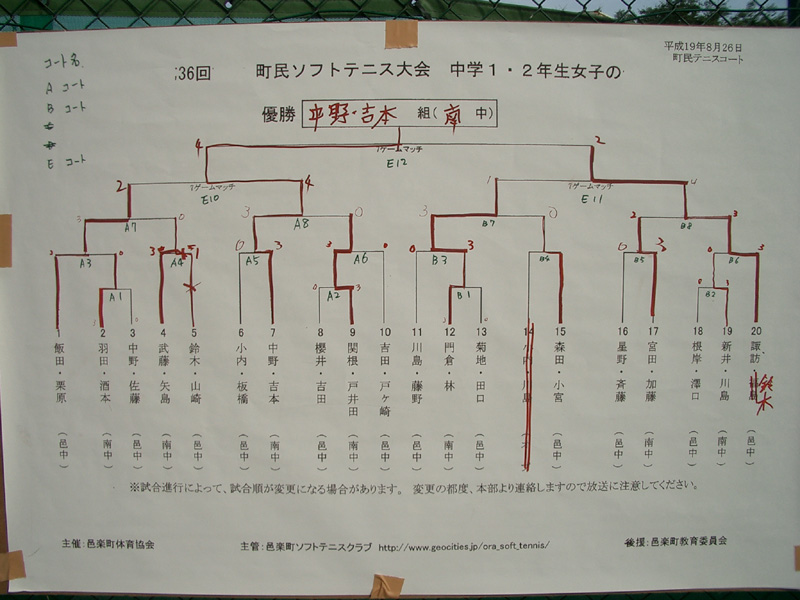 平成19年8月26日
町民テニスコート
36回 町民ソフトテニス大会 中学1・2年生女子の
コート名
A コート
B コート
E コート
優勝 中野・吉本 組(南 中)
4 7ゲームマッチ 2
E12
2 7ゲームマッチ 4 1 7ゲームマッチ 4
E10 E11
3 A7 0 3 A8 0 3 B7 0 2 B8 3
A3 3 A4 1 0 A5 3 3 A6 0 0 B3 3 B4 0 B5 3 0 B6 3
A1 A2 B1 B2
1 2 3 4 5 6 7 8 9 10 11 12 13 14 15 16 17 18 19 20
飯田・栗原(邑中)
羽田・酒本(南中)
中野・佐藤(南中)
武藤・矢島(南中)
鈴木・山崎(邑中)
小内・板橋(邑中)
中野・吉本(南中)
櫻井・吉田(邑中)
関根・戸井田(南中)
吉田・戸ヶ崎(邑中)
川島・藤野(邑中)
門倉・林(南中)
菊地・田口(邑中)
小内・川島
森田・小宮(邑中)
星野・斉藤(邑中)
宮田・加藤(南中)
根岸・澤口(邑中)
新井・川島(南中)
諏訪・鈴木(邑中)
※試合進行によって、試合順が変更になる場合があります。 変更の都度、本部より連絡しますので放送に注意してください。
主催:邑楽町体育協会 主管:邑楽町ソフトテニスクラブ http://www.geocities.jp/ora_soft_tennis/ 後援:邑楽町教育委員会